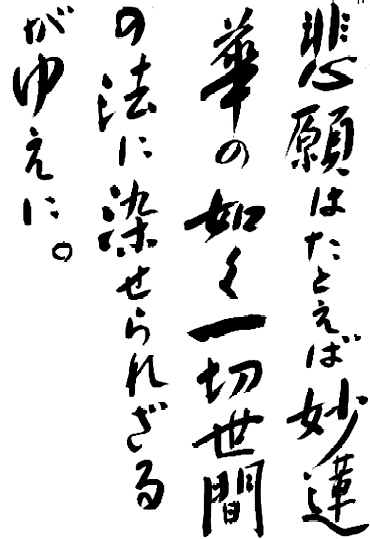 悲願はたとえば妙蓮
華の如く一切世間
の法に染せられざる
がゆえに。